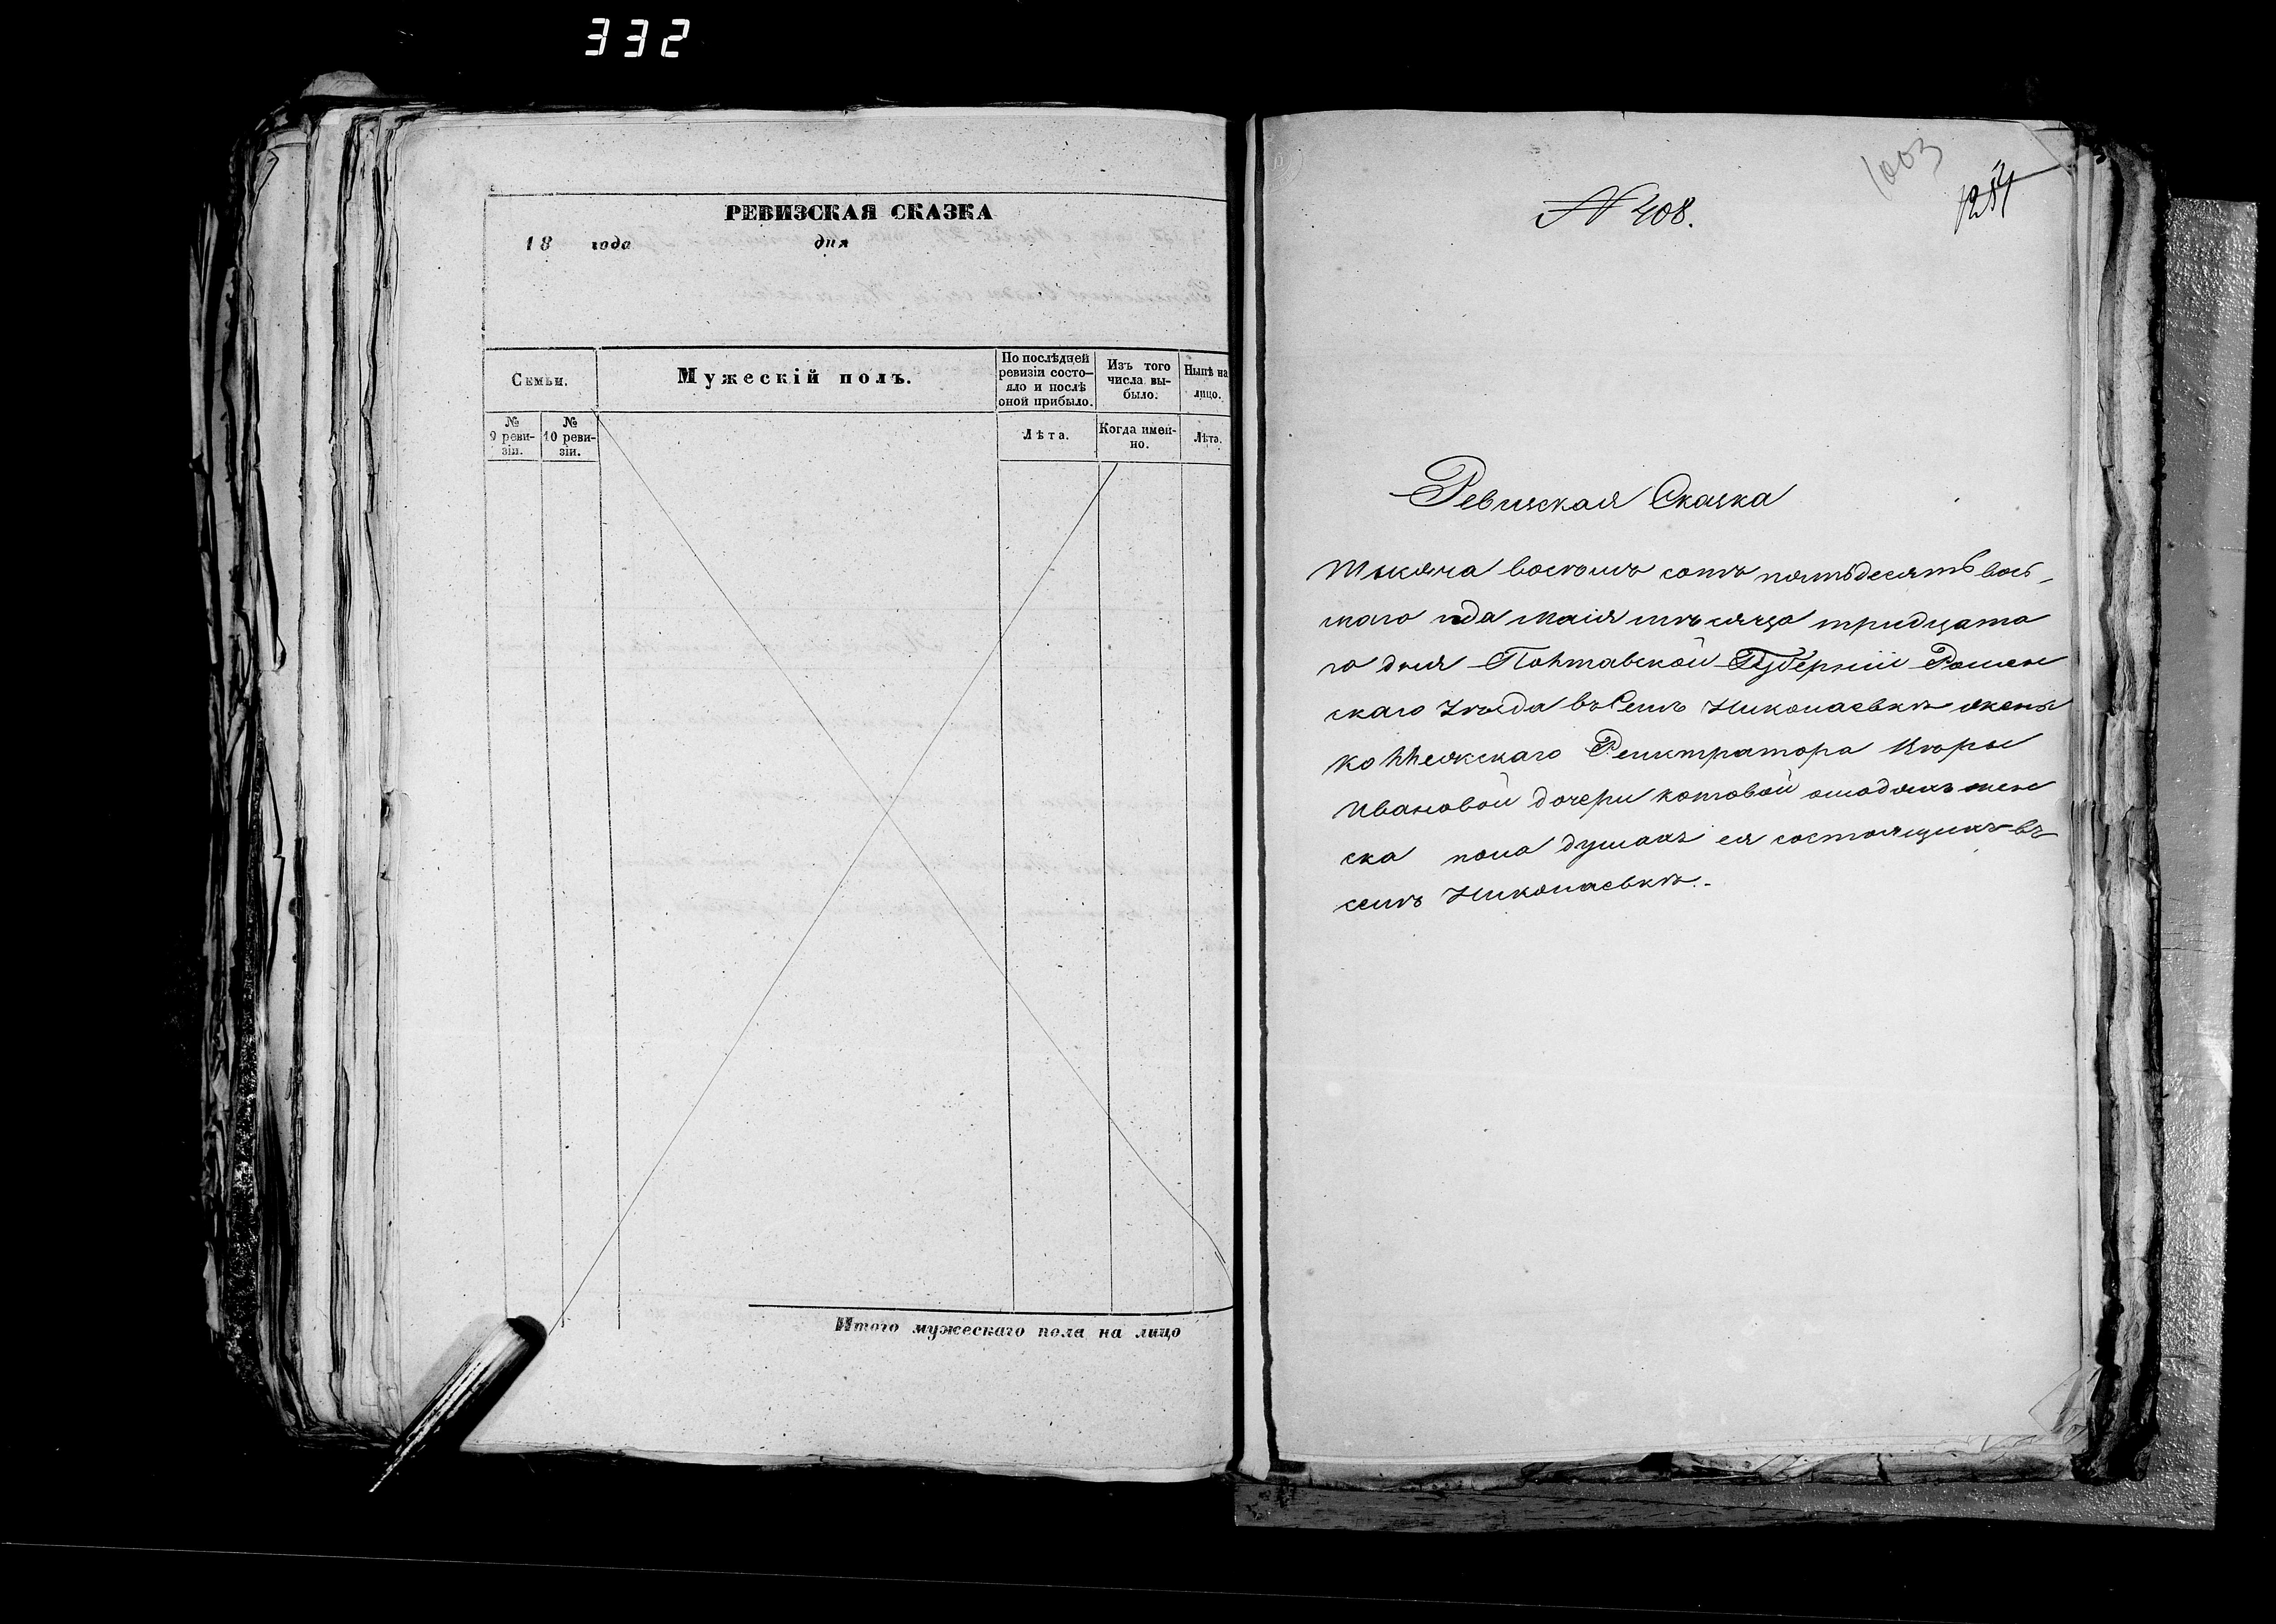 332
РЕВИЗСКАЯ СКАЗКА
18 года дня
Семьи.
Мужескій полъ.
По послѣдней ревизіи состояло и послѣ оной прибыло.
Изъ того числа выбыло.
Нынѣ на лицо.
№ 9 ревизіи.
№ 10 ревизіи.
Лѣта.
Когда именно.
Лѣта.
Итого мужескаго пола на лицо
1003
N 408.
Ревизская Сказка
тысяча восемъ сотъ пятьдесятъ вось-
маго года маія мѣсяца тридцата
го дня Полтавской Губерніи Ромен
скаго Уѣзда въ Селѣ Николаевкѣ жены
коллежскаго Регистратора Вѣры
Ивановой дочери Котовой женс
ска пола душахъ ея состоящихъ въ
селѣ Николаевкѣ.-